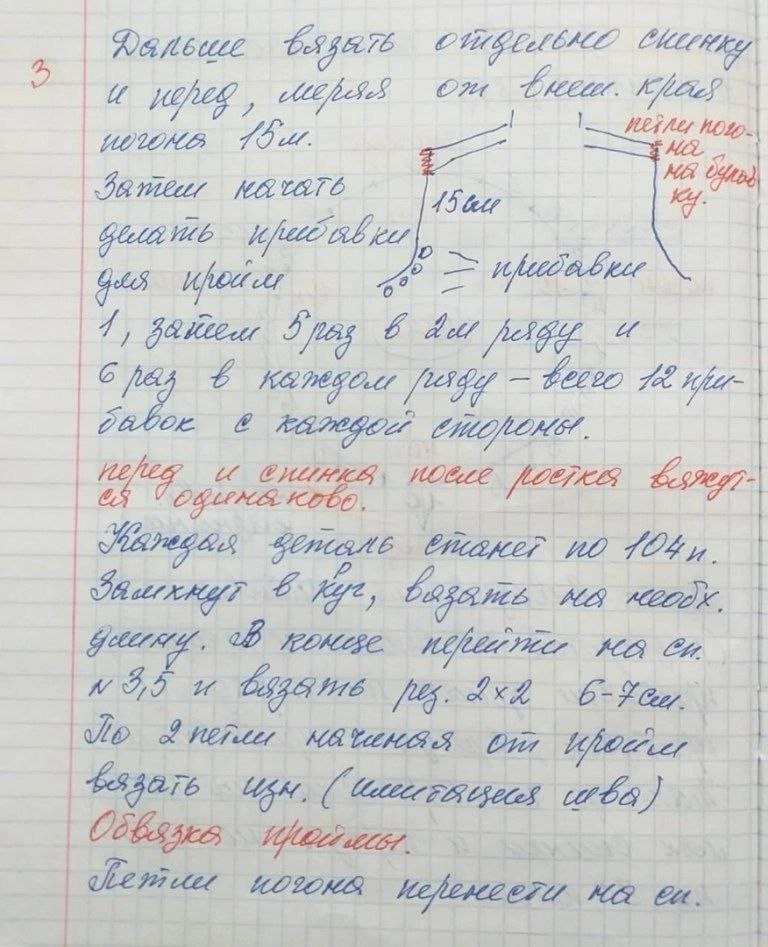 3
Дальше вязать отдельно спинку
и перед, меряя от внеш. края
погона 15м.
петли пого-
на
на булав
ку.
Затем начать
15см
делать прибавки
для пройм
прибавки
1, затем 5 раз в 2м ряду и
6 раз в каждом ряду – всего 12 при-
бавок с каждой стороны.
перед и спинка после ростка вяжут-
ся одинаково.
Каждая деталь станет по 104 п.
Замкнут в круг, вязать на необх.
длину. В конце перейти на сп.
№ 3,5 и вязать рез. 2×2 6-7 см.
По 2 петли начиная от пройм
вязать изн. (имитация шва)
Обвязка проймы.
Петли погона перенести на сп.